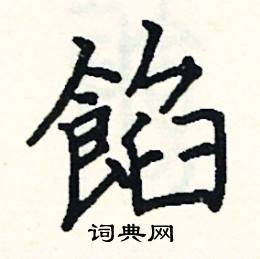 餡
词典网